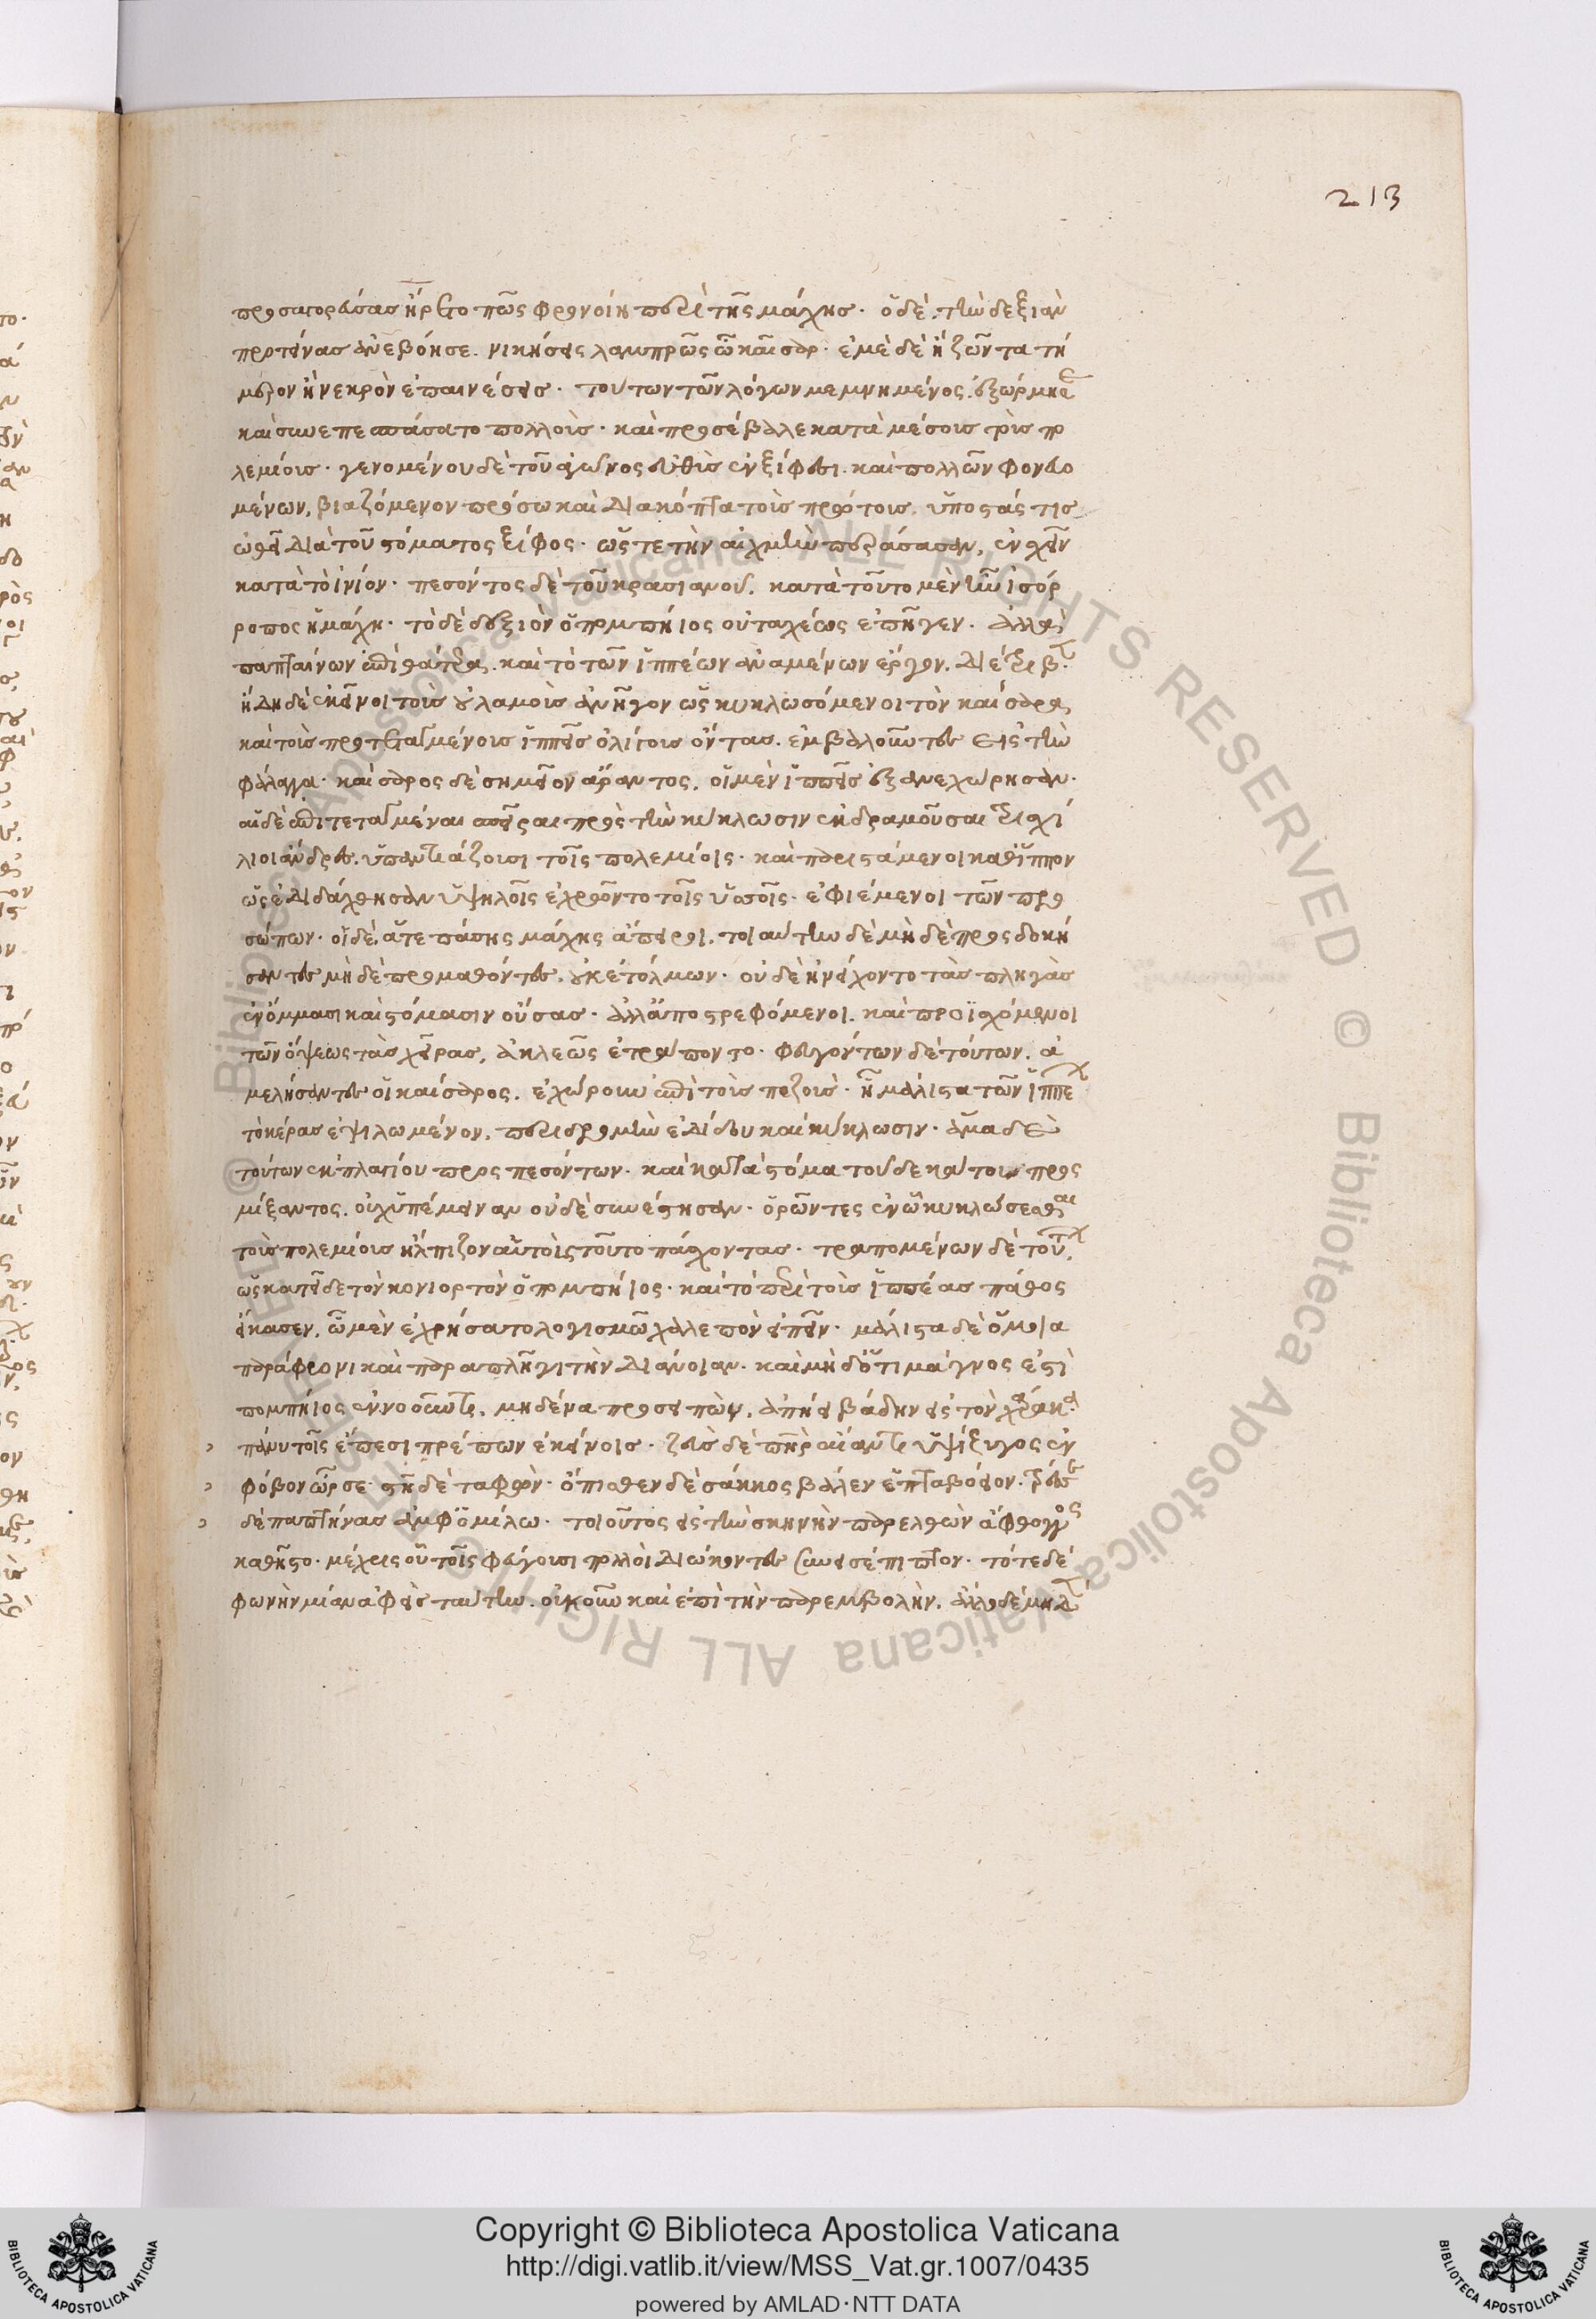 213
προσαγορεύσας ἤρετο πῶς φρονοίη περὶ τῆς μάχης. ὁ δὲ τὴν δεξιὰν
προτείνας ἀνεβόησε. νικήσεις λαμπρῶς ὦ καῖσαρ. ἐμὲ δὲ ἢ ζῶντα τή
μερον ἢ νεκρὸν ἐπαινέσεις. τούτων τῶν λόγων μεμνημένος. ἐξώρμησε
καὶ συνεπεσπάσατο πολλοὺς. καὶ προσέβαλε κατὰ μέσους τοὺς πο
λεμίους. γενομένου δὲ τοῦ ἀγῶνος εὐθὺς ἐν ξίφεσι. καὶ πολλῶν φονευο
μένων, βιαζόμενον πρόσω καὶ διακόπτοντα τοὺς πρώτους. ὑποστάς τις
ὠθεῖ διὰ τοῦ στόματος ξίφος. ὥστε τὴν αἰχμὴν περάσασαν, ἀνασχεῖν
κατὰ τὸ ἰνίον. πεσόντος δὲ τοῦ κρασιανοῦ. κατὰ τοῦτο μὲν ἦν ἰσόρ
ροπος ἡ μάχη. τὸ δὲ δεξιὸν ὁ πομπήιος οὐ ταχέως ἐπῆγεν. ἀλλὰ
παπταίνων ἐπὶ θάτερα. καὶ τὸ τῶν ἱππέων ἀναμένων ἔργον. διέτριβεν
ἤδη δὲ ἐκεῖνοι τοὺς οὐλαμοὺς ἀνῆγον ὡς κυκλωσόμενοι τὸν καίσαρα
καὶ τοὺς προτεταγμένους ἱππεῖς ὀλίγους ὄντας. ἐμβαλοῦντες εἰς τὴν
φάλαγγα. καίσαρος δὲ σημεῖον ἄραντος, οἱ μὲν ἱππεῖς ἐξανεχώρησαν.
αἱ δὲ ἐπιτεταγμέναι σπεῖραι πρὸς τὴν κύκλωσιν ἐκδραμοῦσαι τρισχί
λιοι ἄνδρες. ὑπαντιάζουσι τοῖς πολεμίοις. καὶ παριστάμενοι καθ' ἵππων
ὡς ἐδιδάχθησαν ὑψηλοῖς ἐχρῶντο τοῖς ὑσσοῖς. ἐφιέμενοι τῶν προ
σώπων. οἱ δὲ, ἅτε πάσης μάχης ἄπειροι. τοιαύτην δὲ μὴ δὲ προσδοκή
σαντες μὴ δὲ προμαθόντες, οὐκ ἐτόλμων. οὐδὲ ἠνείχοντο τὰς πληγὰς
ἐν ὄμμασι καὶ στόμασιν οὔσας. ἀλλ' ἀποστρεφόμενοι. καὶ προϊσχόμενοι
τῶν ὄψεως τὰς χεῖρας, ἀκλεῶς ἐτράποντο. φευγόντων δὲ τούτων. ἀ
μελήσαντες οἱ καίσαρος. ἐχώρουν ἐπὶ τοὺς πεζοὺς. ᾗ μάλιστα τῶν ἱππέων
τὸ κέρας ἐψιλωμένον, περιδρομὴν ἐδίδου καὶ κύκλωσιν. ἅμα δὲ
τούτων ἐκ πλαγίου προσπεσόντων. καὶ κατὰ στόμα τοῦ δεκάτου προσ
μίξαντος. οὐχ ὑπέμειναν οὐδὲ συνέστησαν. ὁρῶντες ἐν ᾧ κυκλώσεσθαι
τοὺς πολεμίους ἤλπιζον αὑτοὺς τοῦτο πάσχοντας. τραπομένων δὲ τούτων,
ὡς κατεῖδε τὸν κονιορτὸν ὁ πομπήιος. καὶ τὸ περὶ τοὺς ἱππέας πάθος
εἴκασεν, ᾧ μὲν ἐχρήσατο λογισμῷ χαλεπὸν εἰπεῖν. μάλιστα δὲ ὅμοια
παράφρονι καὶ παραπλῆγι τὴν διάνοιαν. καὶ μὴ δ' ὅτι μάγνος ἐστὶ
πομπήιος ἐννοοῦντι. μηδένα προσειπὼν, ἀπῄει βάδην εἰς τὸν χάρακα
πάνυ τοῖς ἔπεσι πρέπων ἐκείνοις. ζεὺς δὲ πατὴρ αἴανθ' ὑψίζυγος ἐν
φόβον ὦρσε. στῆ δὲ ταφὼν. ὄπισθεν δὲ σάκος βάλεν ἑπταβόειον. τρέσσε
δὲ παπτήνας ἀμφ' ὁμίλω. τοιοῦτος εἰς τὴν σκηνὴν παρελθὼν ἄφθογγος
καθῆστο. μέχρις οὗ τοῖς φεύγουσι πολλοὶ διώκοντες συνεισέπιπτον. τότε δὲ
φωνὴν μίαν ἀφεὶς ταύτην. οὐκοῦν καὶ ἐπὶ τὴν παρεμβολήν. ἄλλο δὲ μηδὲν
Copyright © Biblioteca Apostolica Vaticana
http://digi.vatlib.it/view/MSS_Vat.gr.1007/0435
powered by AMLAD·NTT DATA